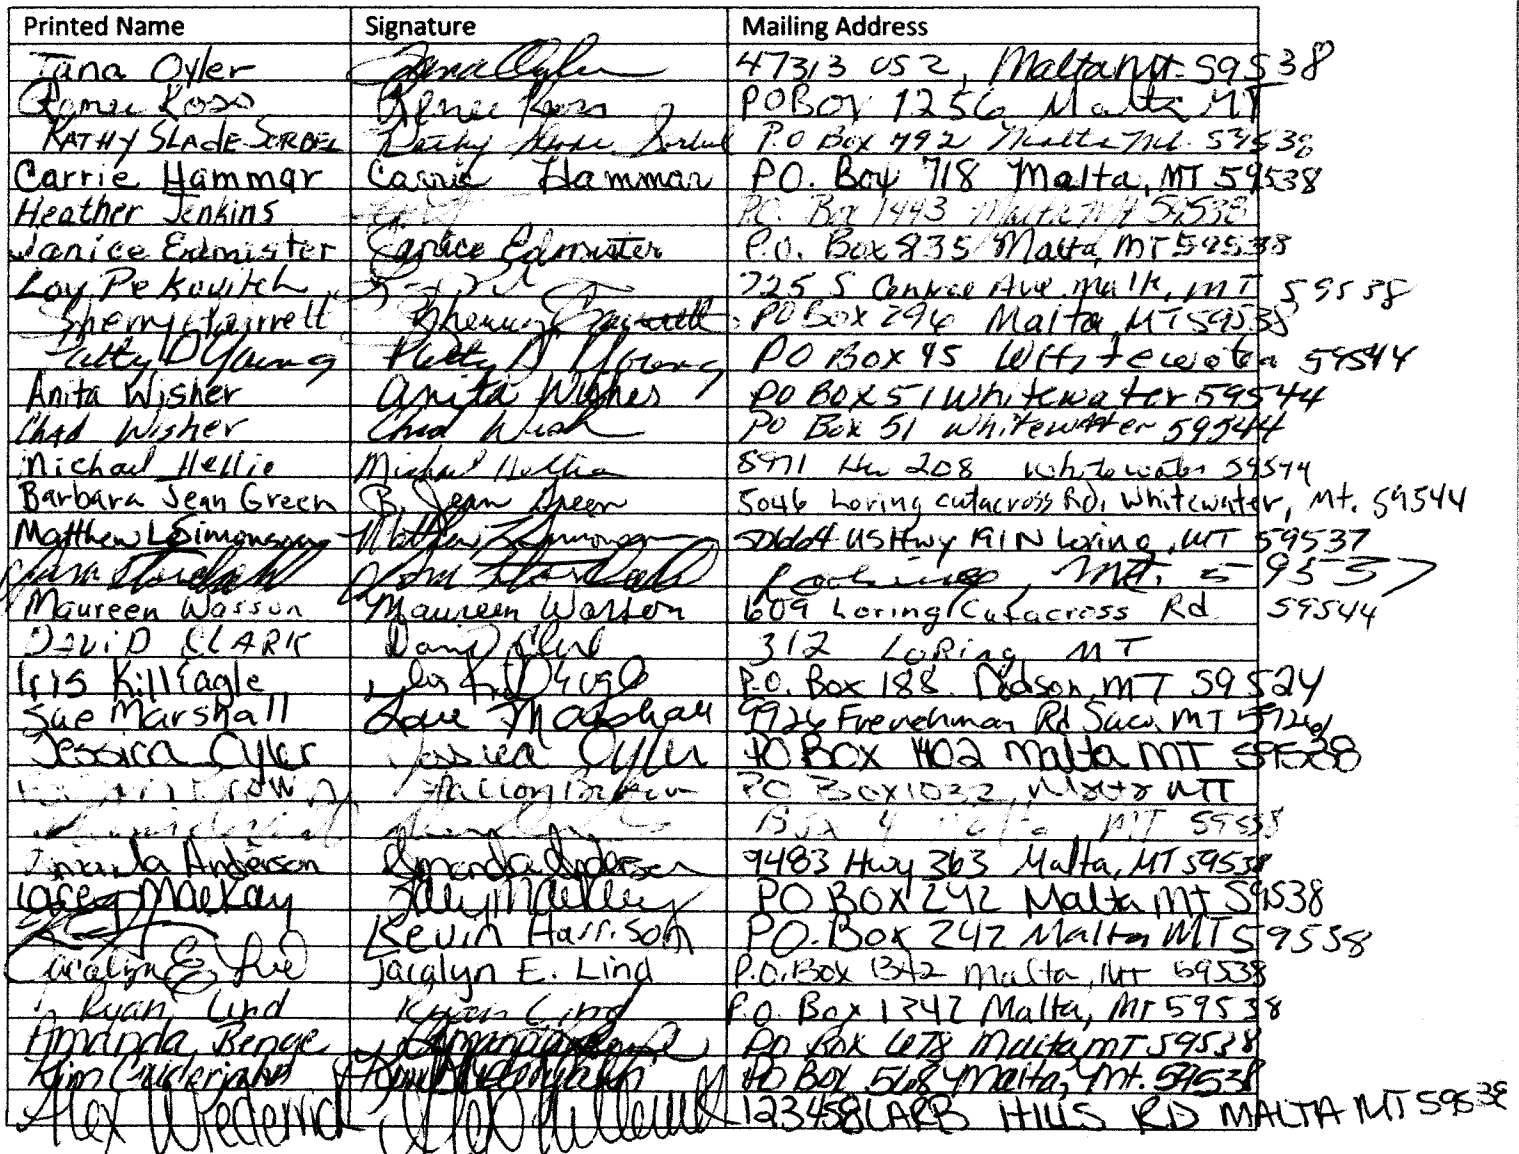 Printed Name Signature Mailing Address
Tana Oyler Tana Oyler 47313 US 2, Malta Mt. 59538
Renee Ross Renee Ross PO Box 1256 Malta MT
KATHY SLADE SORBEL Kathy Slade Sorbel P.O Box 792 Malta Mt. 59538
Carrie Hammar Carrie Hammar P.O. Box 718 Malta, MT 59538
Heather Jenkins P.O. Box 1443 Malta MT 59538
Janice Edmister Janice Edmister P.O. Box 835 Malta, MT 59538
Loy Pekovitch 725 S Central Ave Malta, MT 59538
Sherry Garrett Sherry Garrett PO Box 296 Malta, MT 59538
Patty D Young Patty D Young PO Box 95 Whitewater 59544
Anita Wisher Anita Wisher PO BOX 51 Whitewater 59544
Chad Wisher Chad Wish PO Box 51 Whitewater 59544
Michael Hellie Michael Hellie 8971 Hw 208 Whitewater 59544
Barbara Jean Green B. Jean Green 5046 Loring cutacross RD, Whitewater, Mt. 59544
Matthew L Simonson Matthew L Simonson US Hwy 191 N Loring, MT 59537
Mt. 59537
Maureen Wasson Maureen Wasson 609 Loring Cutacross Rd 59544
DAViD CLARK David Clark 312 LoRing MT
Iris KillEagle P.O. Box 188 Dodson, MT 59524
Sue Marshall Sue Marshall 9926 Frenchman Rd Saco MT
Jessica Oyler Jessica Oyler PO Box 1402 Malta MT 59538
PO Box 1022, Malta MT
Box 4 Malta MT 59538
Amanda Anderson Amanda Anderson 9483 Hwy 363 Malta, MT 59538
Lacey MacKay PO Box 242 Malta Mt 59538
Kevin Harrison P.O. Box 242 Malta MT 59538
Jacalyn E Lind Jacalyn E. Lind P.O. Box 1342 Malta, MT 59538
Ryan Lind Ryan Lind P.O. Box 1342 Malta, MT 59538
Amanda Benge PO Box 678 Malta MT 59538
Kim PO Box 568 Malta, Mt. 59538
Alex 12345 LARB HILLS RD MALTA MT 59538